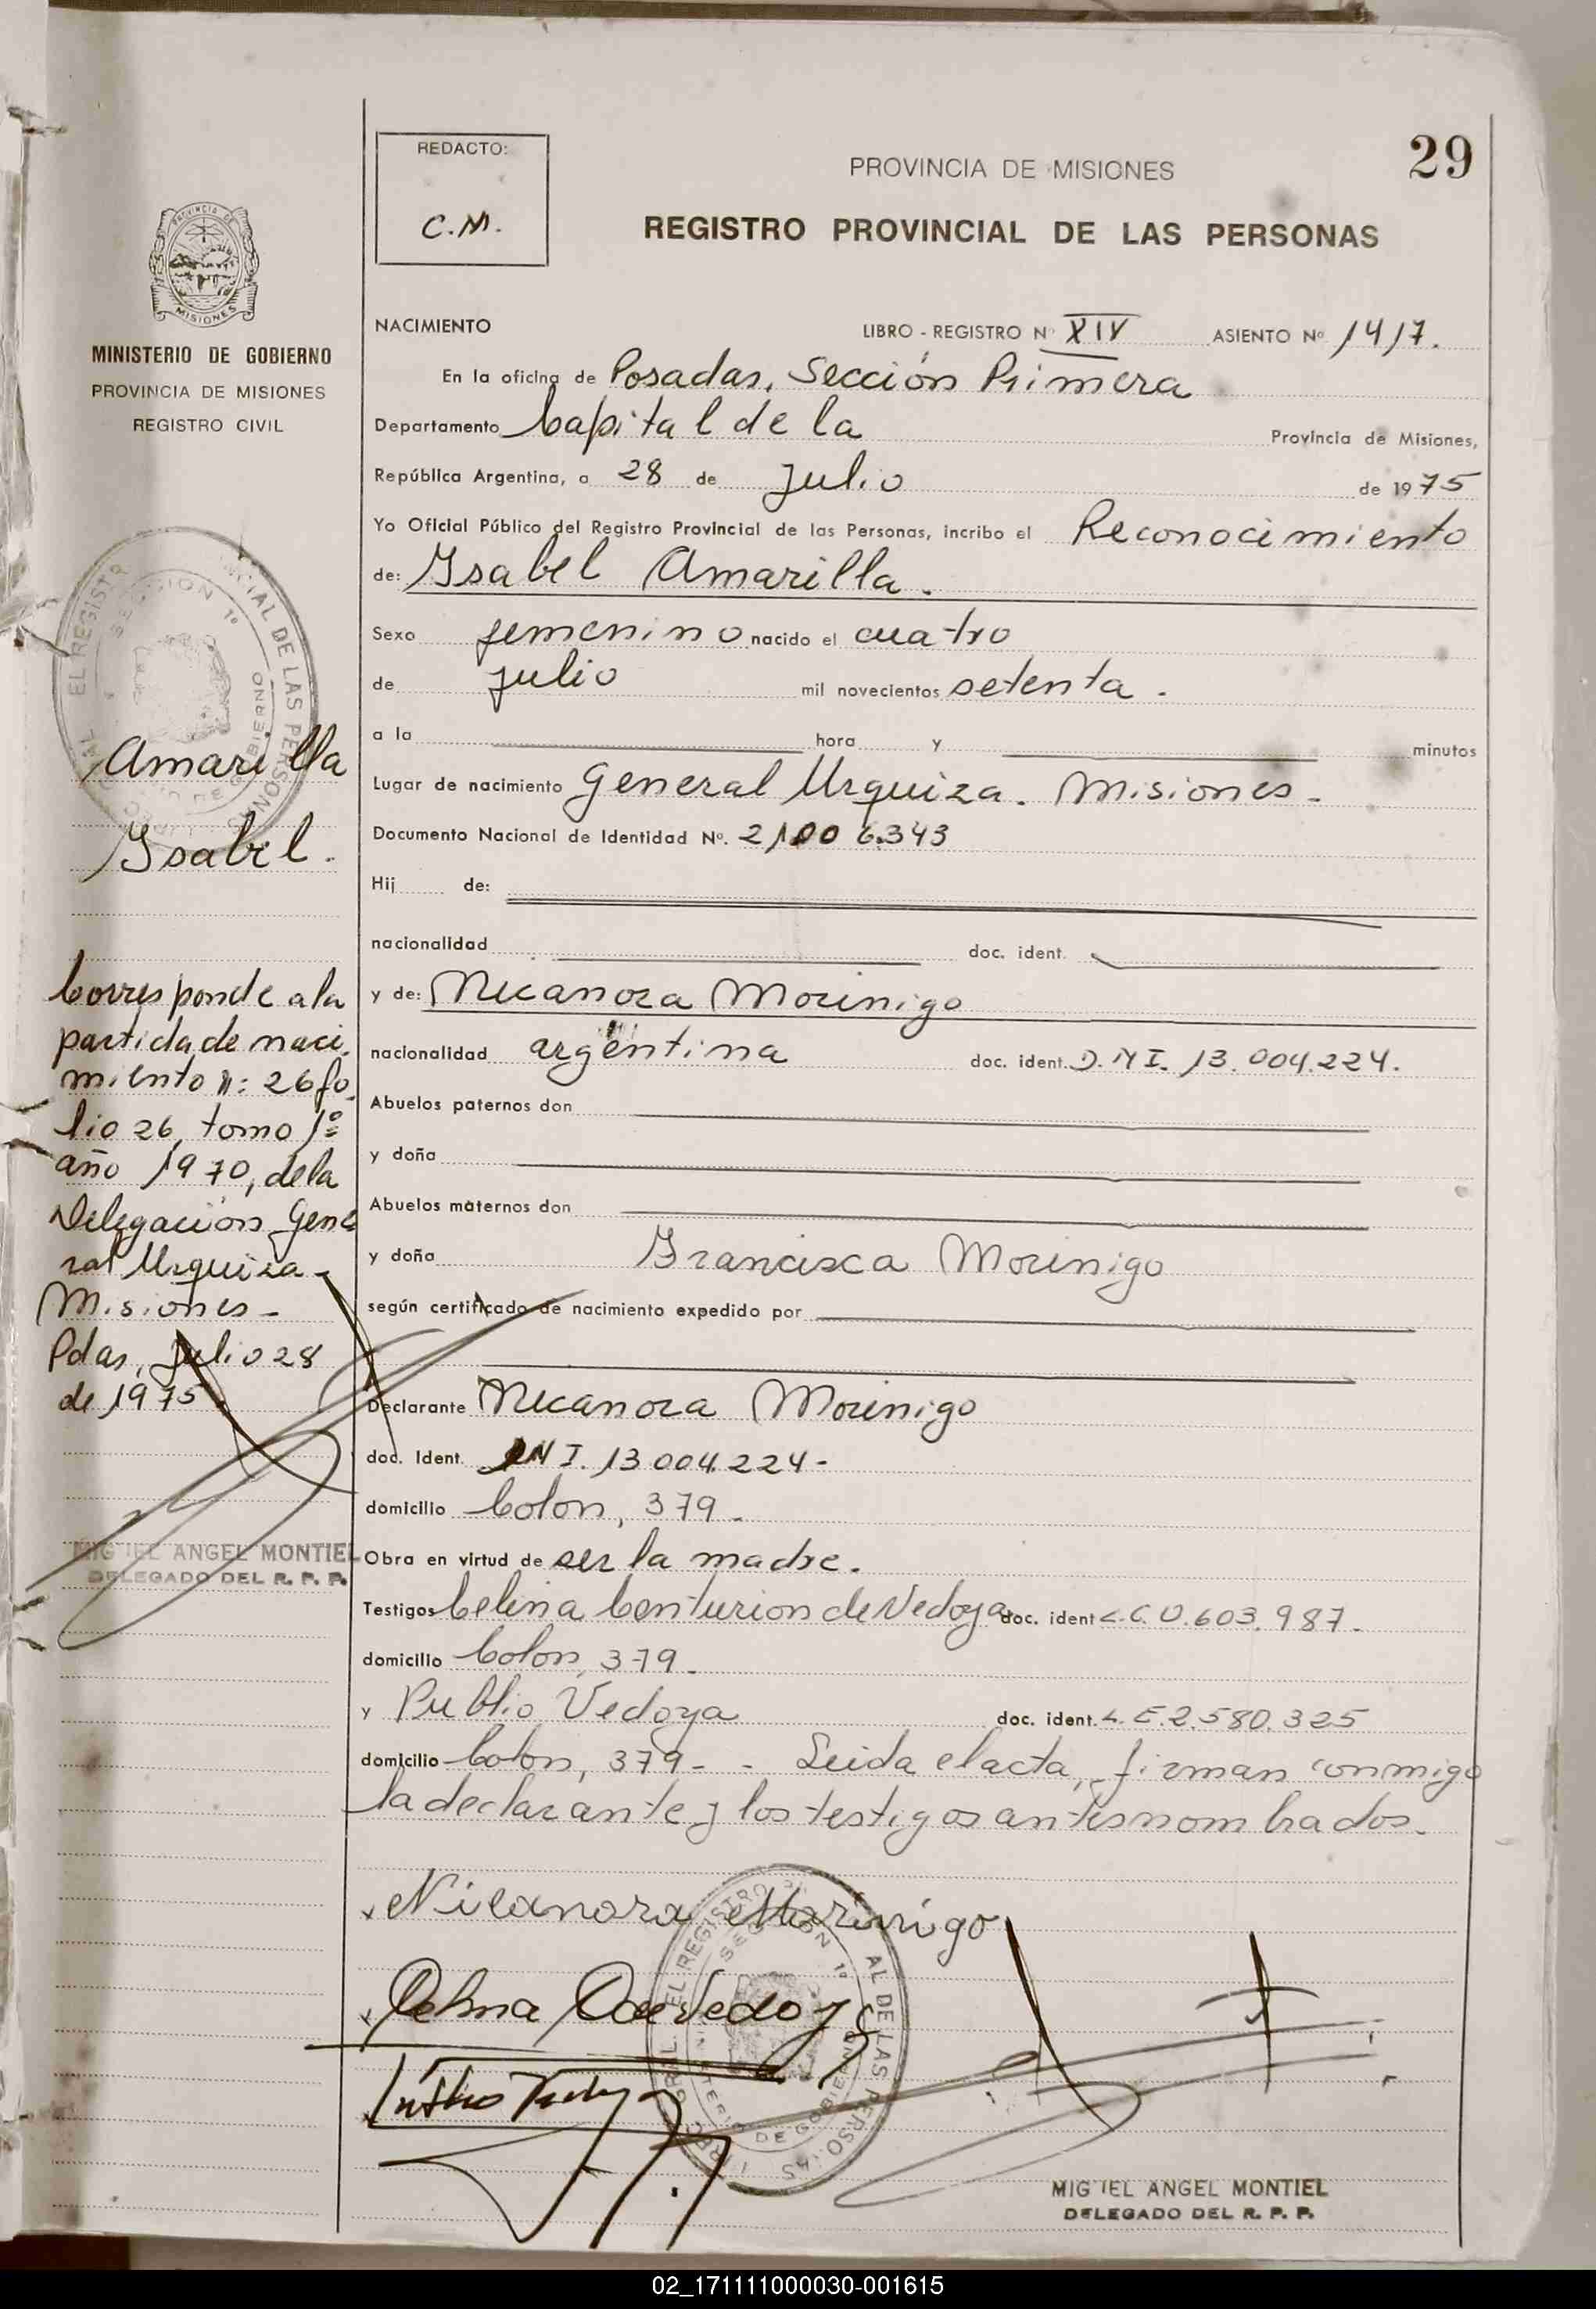 29
REDACTO:
C.M.
PROVINCIA DE MISIONES
REGISTRO PROVINCIAL DE LAS PERSONAS
MISIONES
MINISTERIO DE GOBIERNO
PROVINCIA DE MISIONES
REGISTRO CIVIL
NACIMIENTO LIBRO - REGISTRO Nº XIV ASIENTO Nº 1417.
En la oficina de Posadas, Sección Primera
Departamento Capital de la Provincia de Misiones,
República Argentina, a 28 de Julio de 1975
Yo Oficial Público del Registro Provincial de las Personas, incribo el Reconocimiento
de: Ysabel Amarilla.
Sexo femenino nacido el cuatro
de julio mil novecientos setenta.
a la hora y minutos
Lugar de nacimiento General Urquiza. Misiones.
Documento Nacional de Identidad Nº. 21.006.343
Hij de:
nacionalidad doc. ident.
y de: Nicanora Morinigo
nacionalidad argentina doc. ident. D.N.I. 13.004.224.
Abuelos paternos don
y doña
Abuelos maternos don
y doña Francisca Morinigo
según certificado de nacimiento expedido por
Declarante Nicanora Morinigo
doc. Ident. DNI. 13.004.224-
domicilio Colon, 379.
Obra en virtud de ser la madre.
Testigos Celina Centurion de Vedoya doc. ident L.C. 0.603.987.
domicilio Colon, 379.
y Publio Vedoya doc. ident. L.E. 2.580.325
domicilio Colon, 379- - Leida el acta, firman conmigo
la declarante y los testigos antes nombrados.
Amarilla
Ysabel.
Corresponde a la
partida de naci-
miento n: 26 fo-
lio 26, tomo 1º
año 1970, de la
Delegación Gene
ral Urquiza
Misiones-
Pdas, Julio 28
de 1975.
MIGUEL ANGEL MONTIEL
DELEGADO DEL R. P. P.
Nicanora Morinigo
MIGUEL ANGEL MONTIEL
DELEGADO DEL R. P. P.
02_171111000030-001615